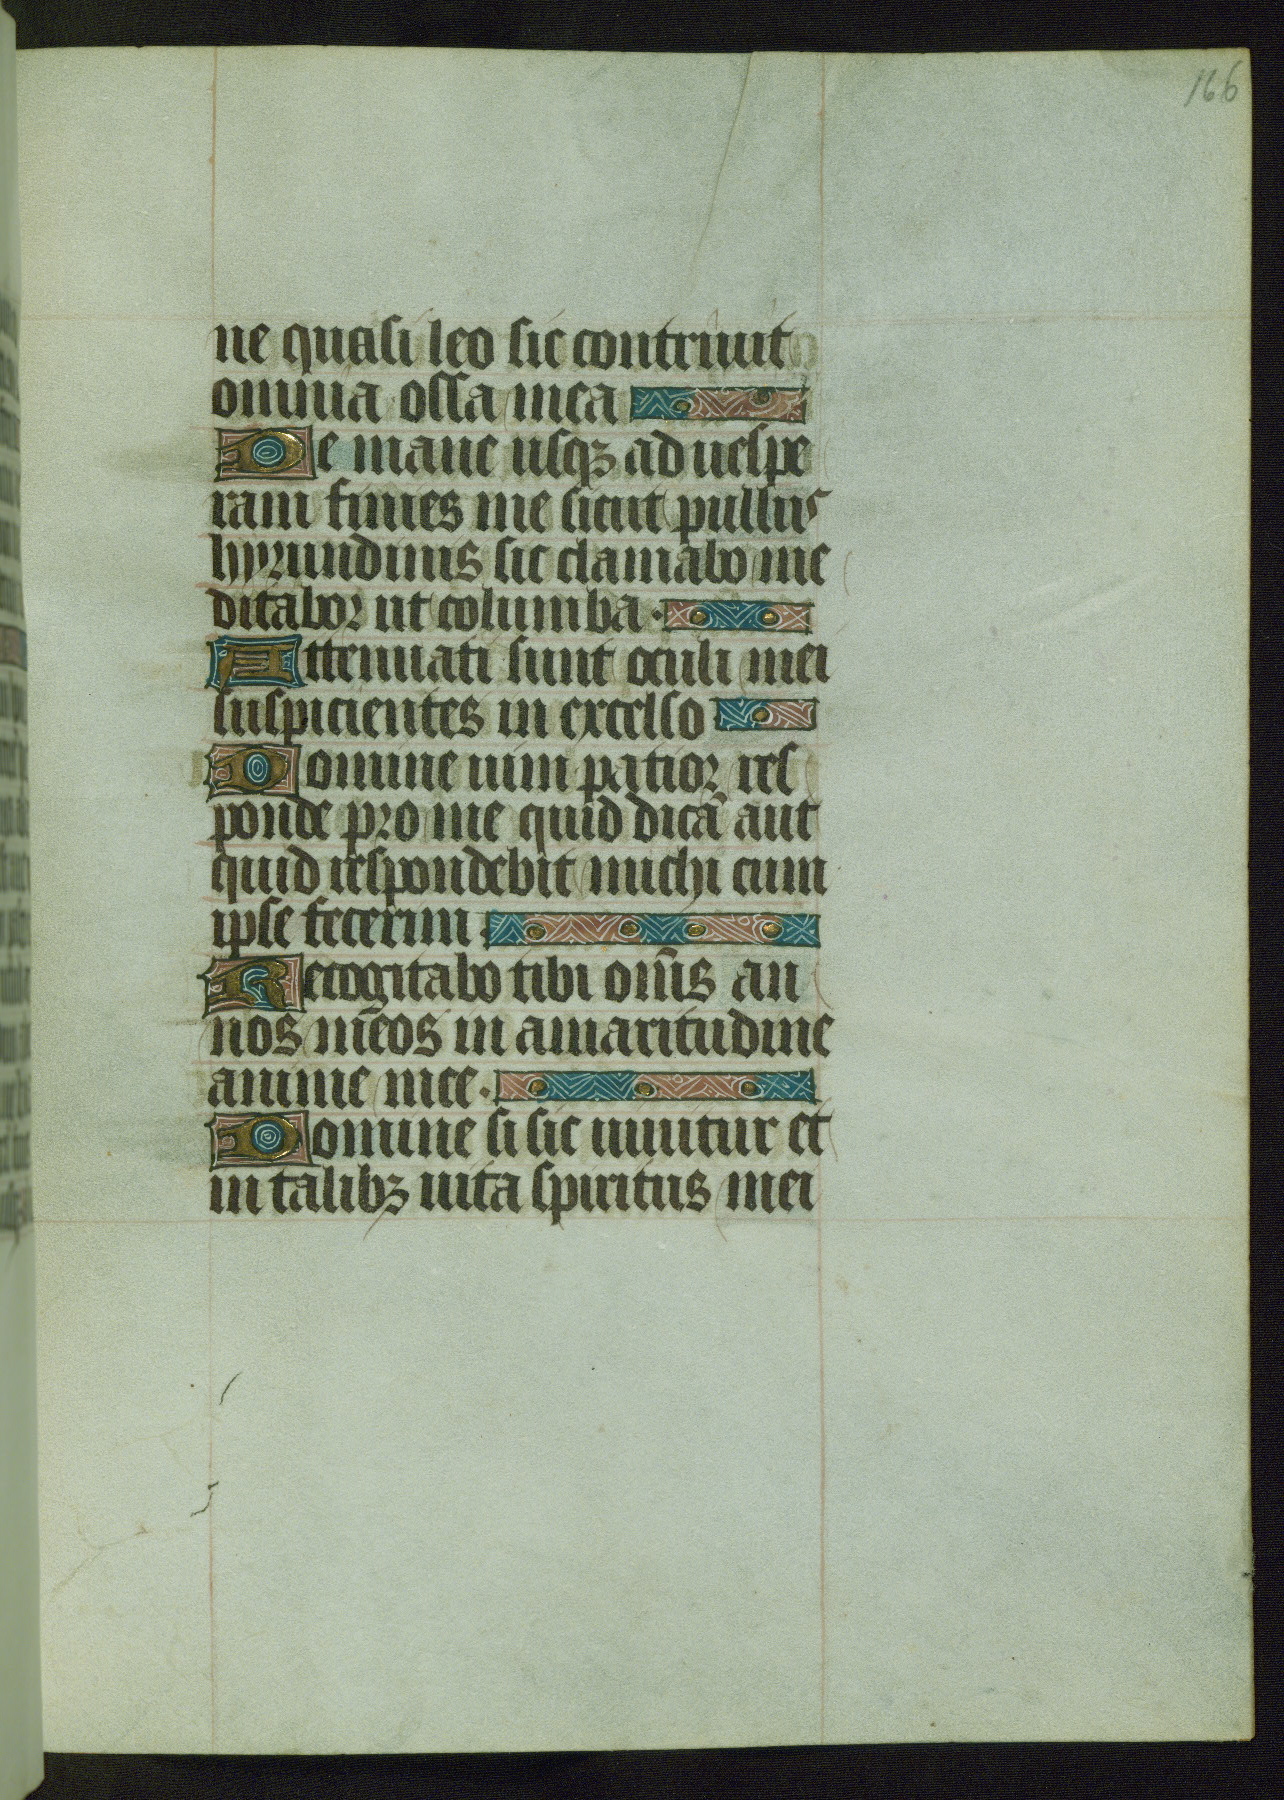 166
ne quasi leo sic contriuit
omnia ossa mea
De mane usqꝫ ad uespe
ram finies me sicut pullus
hyrundinis sic clamabo me
ditabor ut columba ·
Attenuati sunt oculi mei
suspicientes in excelso
Domine uim patior res
ponde pro me quid dicā aut
quid respondebit michi cum
ipse fecerim ·
Recogitabo tibi om̄s an
nos meos in amaritudine
anime mee ·
Domine si sic uiuitur et
in talibꝫ uita spiritus mei